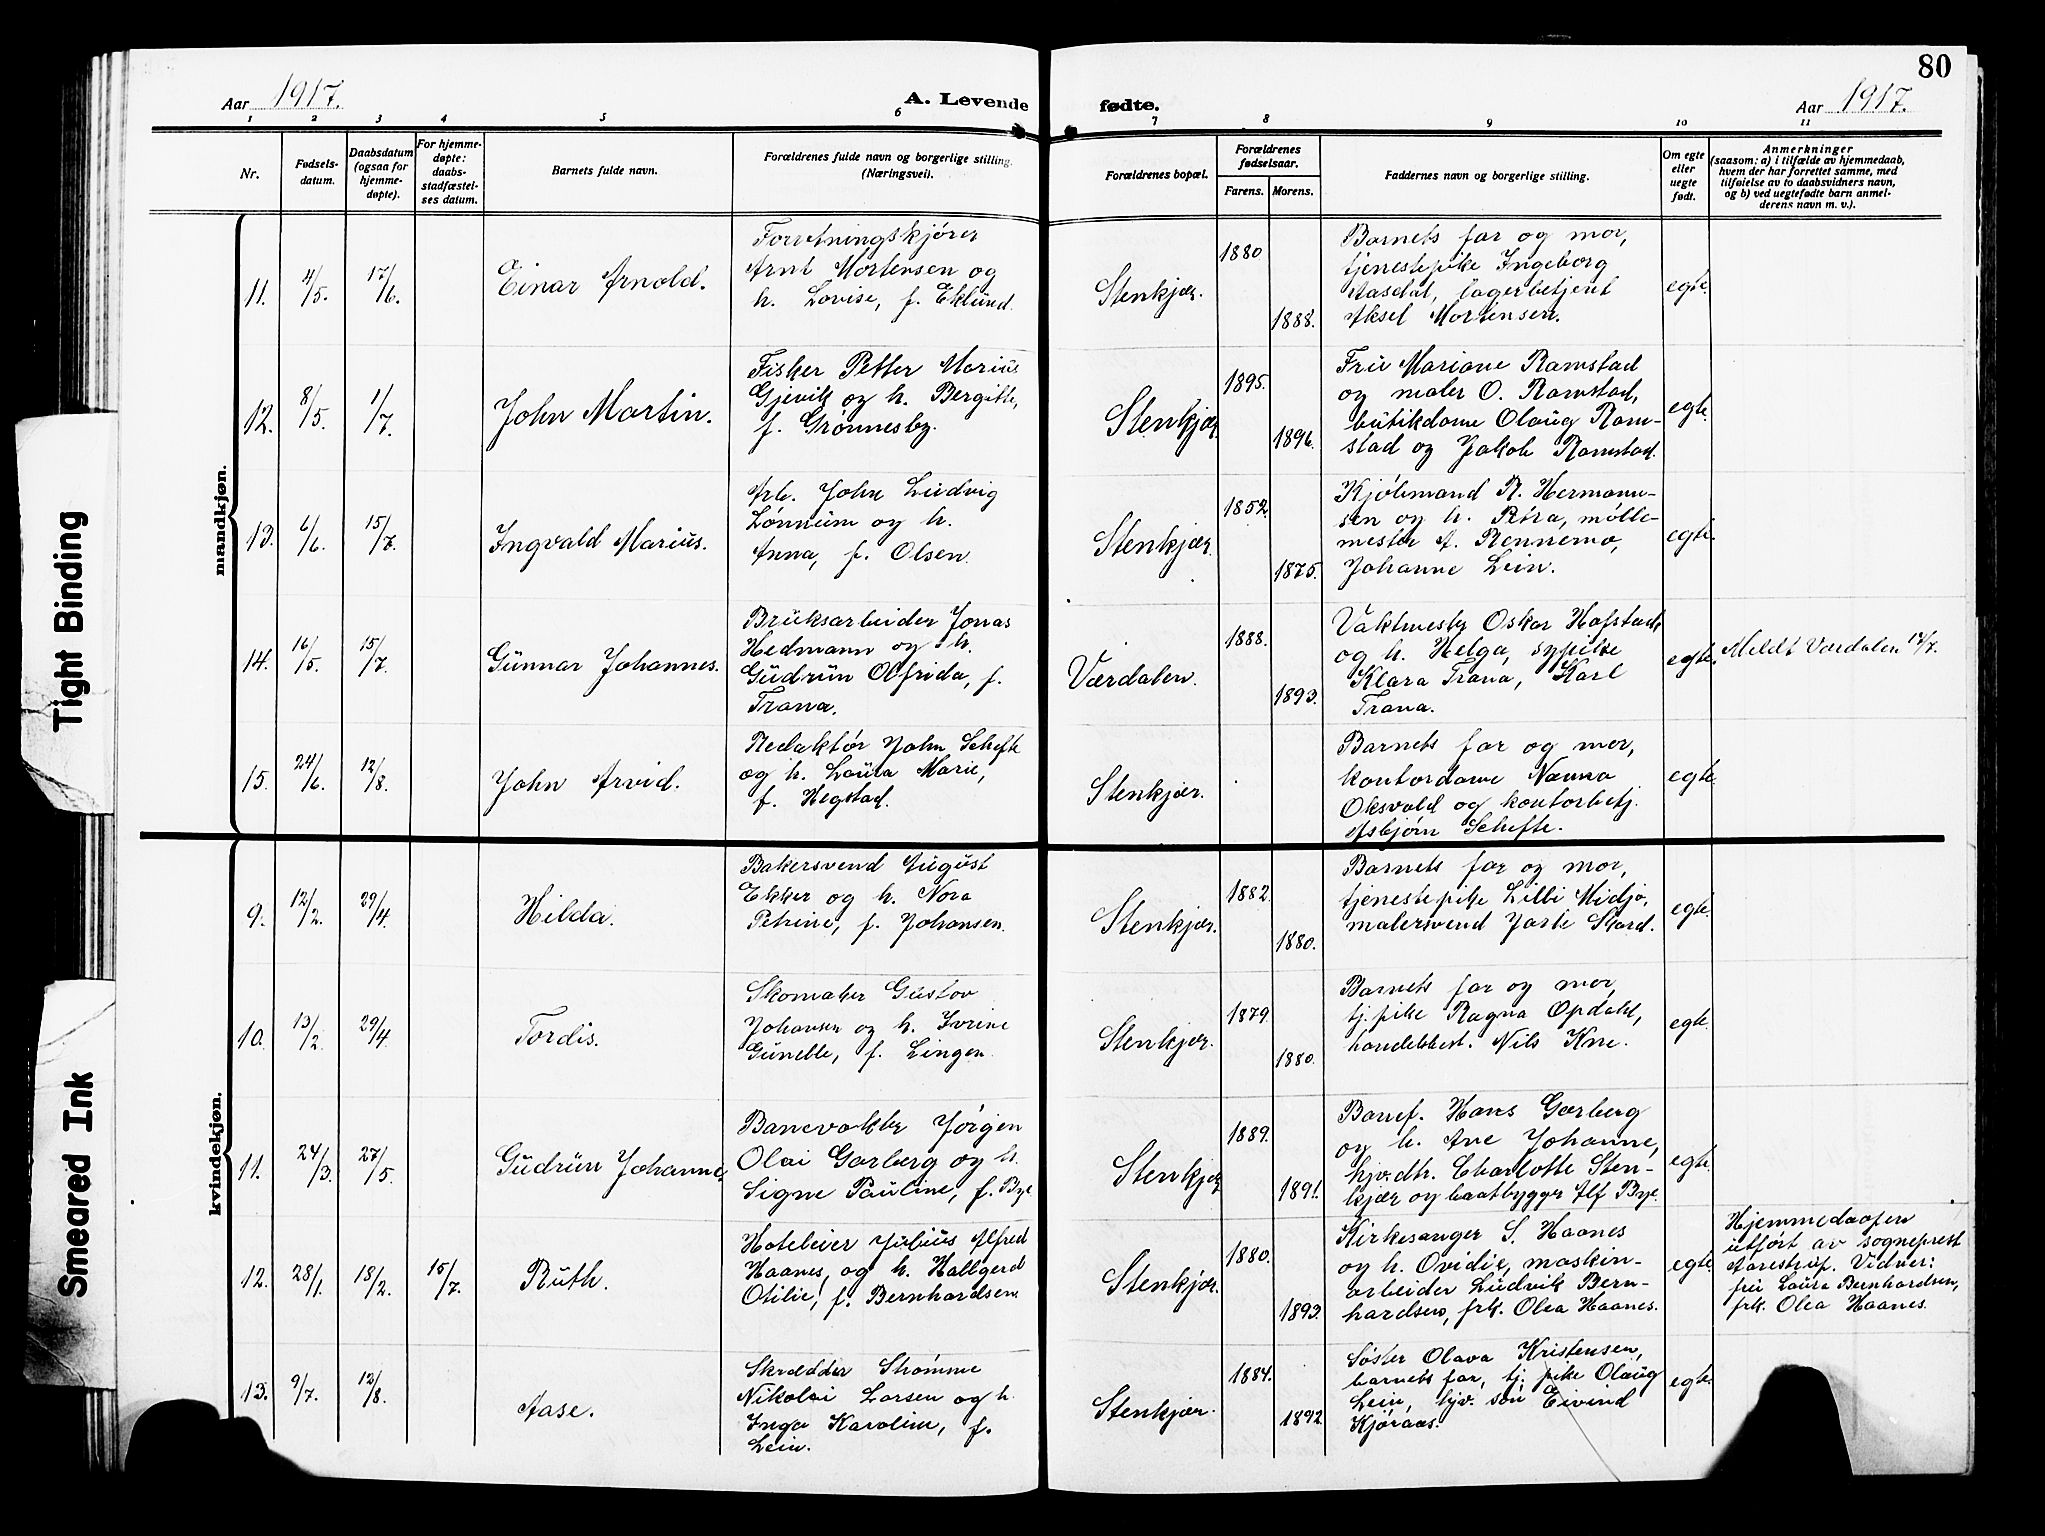 80
Aar 1917.
A. Levende
fødte.
Aar 1917.
1 2 3 4 5 6 7 8 9 10 11
Nr.
Fødsels-
datum.
Daabsdatum
(ogsaa for
hjemme-
døpte).
For hjemme-
døpte:
daabs-
stadfæstel-
ses datum.
Barnets fulde navn.
Forældrenes fulde navn og borgerlige stilling.
(Næringsvei).
Forældrenes bopæl.
Forældrenes
fødselsaar.
Farens. Morens.
Faddernes navn og borgerlige stilling.
Om egte
eller
uegte
født.
Anmerkninger
(saasom: a) i tilfælde av hjemmedaab,
hvem der har forrettet samme, med
tilføielse av to daabsvidners navn,
og b) ved uegtefødte barn anmel-
derens navn m. v.).
mandkjøn.
11. 4/5. 17/6. Einar Arnold.
Forretningskjører
Arnt Mortensen og
h. Lovise, f. Eklund.
Stenkjær.
1880
1888.
Barnets far og mor,
tjenestepike Ingeborg
Aasdal, lagerbetjent
Aksel Mortensen.
egte.
12. 8/5. 1/7. John Martin.
Fisker Petter Marius
Gjevik og h. Bergitte,
f. Grønnesby.
Stenkjær.
1895.
1896.
Fru Mariane Ramstad
og maler O. Ramstad,
butikdame Olaug Ram-
stad og Jakob Ramstad.
egte.
13. 6/6. 15/7. Ingvald Marius.
Arb. John Ludvig
Lønnum og h.
Anna, f. Olsen.
Stenkjær.
1852.
1875.
Kjøbmand R. Hermann-
sen og h. Petra, mølle-
mester A. Rennemo,
Johanne Lein.
egte.
14. 16/5. 15/7. Gunnar Johannes.
Bruksarbeider Jonas
Hedmann og h.
Gudrun Olfrida, f.
Trana.
Værdalen.
1888.
1893.
Vaktmester Oskar Hofstad
og h. Helga, sypike
Klara Trana, Karl
Trana.
egte.
Meldt Værdalen 17/7.
15. 24/6. 12/8. John Arvid.
Redaktør John Schefte
og h. Laura Marie,
f. Hegstad.
Stenkjær.
Barnets far og mor,
kontordame Nanna
Oksvold og kontorbetj.
Asbjørn Schefte.
egte.
kvindekjøn.
9. 12/2. 29/4. Hilda.
Bakersvend August
Ekker og h. Nora
Petrine, f. Johansen.
Stenkjær.
1882.
1880.
Barnets far og mor,
tjenestepike Lilli Midjo,
malersvend Jarle Skard.
egte.
10. 13/2. 29/4. Tordis.
Skomaker Gustav
Johansen og h. Ivrine
Gunelle, f. Lingen.
Stenkjær.
1879.
1880.
Barnets far og mor,
tj.pike Ragna Opdahl,
handelsbest. Nils Kne.
egte.
11. 24/3. 27/5. Gudrun Johanne.
Banevokter Jørgen
Olai Garberg og h.
Signe Pauline, f. Bye.
Stenkjær.
1889.
1891.
Banef. Hans Garberg
og h. Ane Johanne,
hjv.dtr. Charlotte Sten-
kjær og baatbygger Alf Bye.
egte.
12. 28/1. 18/2. 15/7. Ruth.
Hoteleier Julius Alfred
Haanes, og h. Hallgerd
Otilie, f. Bernhardsen.
Stenkjær.
1880.
1893.
Kirkesanger S. Haanes
og h. Ovidie, maskin-
arbeider Ludvik Bern-
hardsen, frk. Olea Haanes.
egte.
Hjemmedaapen
utført av sogneprest
Aarestrup. Vidner:
fru Laura Bernhardsen,
frk. Olea Haanes.
13. 9/7. 12/8. Aase.
Skrædder Strømme
Nikolai Larsen og h.
Inga Karoline, f.
Lein.
Stenkjær.
1884.
1892.
Søster Olava Kristensen,
barnets far, tj. pike Olaug
Lein, hjv. søn Eivind
Kjøraas.
egte.
Tight Binding
Smeared Ink